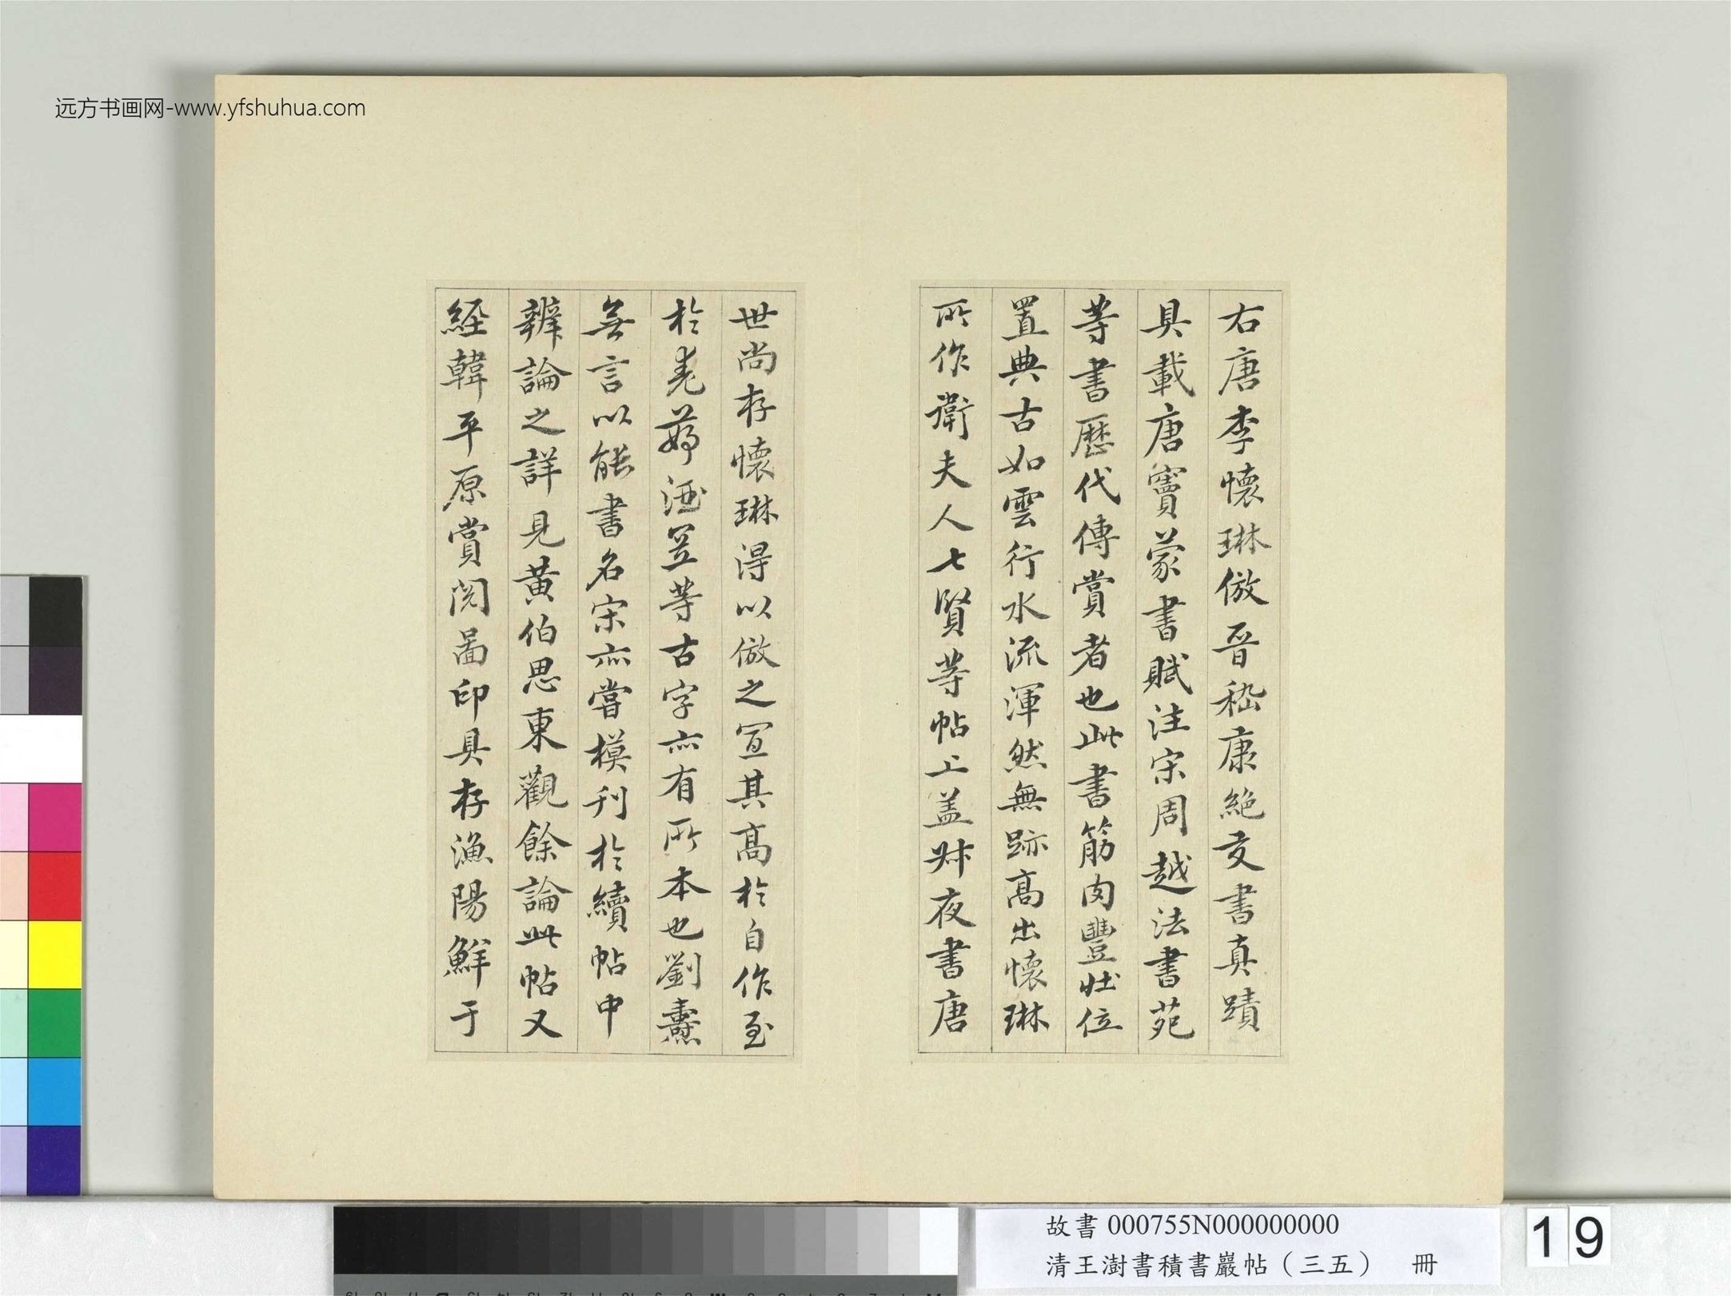 远方书画网-www.yfshuhua.com
右唐李懷琳倣晉嵇康絶交書真蹟
具載唐竇蒙書賦注宋周越法書苑
等書歷代傳賞者也此書筋肉豐壯位
置典古如雲行水流渾然無跡高出懷琳
所作衛夫人七賢等帖上盖叔夜書唐
世尚存懷琳得以倣之宜其高於自作至
於 等古字亦有所本也劉燾
無言以能書名宋亦嘗模刊於續帖中
辨論之詳見黄伯思東觀餘論此帖又
經韓平原賞閱圖印具存漁陽鮮于
故書 000755N000000000
清王澍書積書巖帖（三五） 冊
19